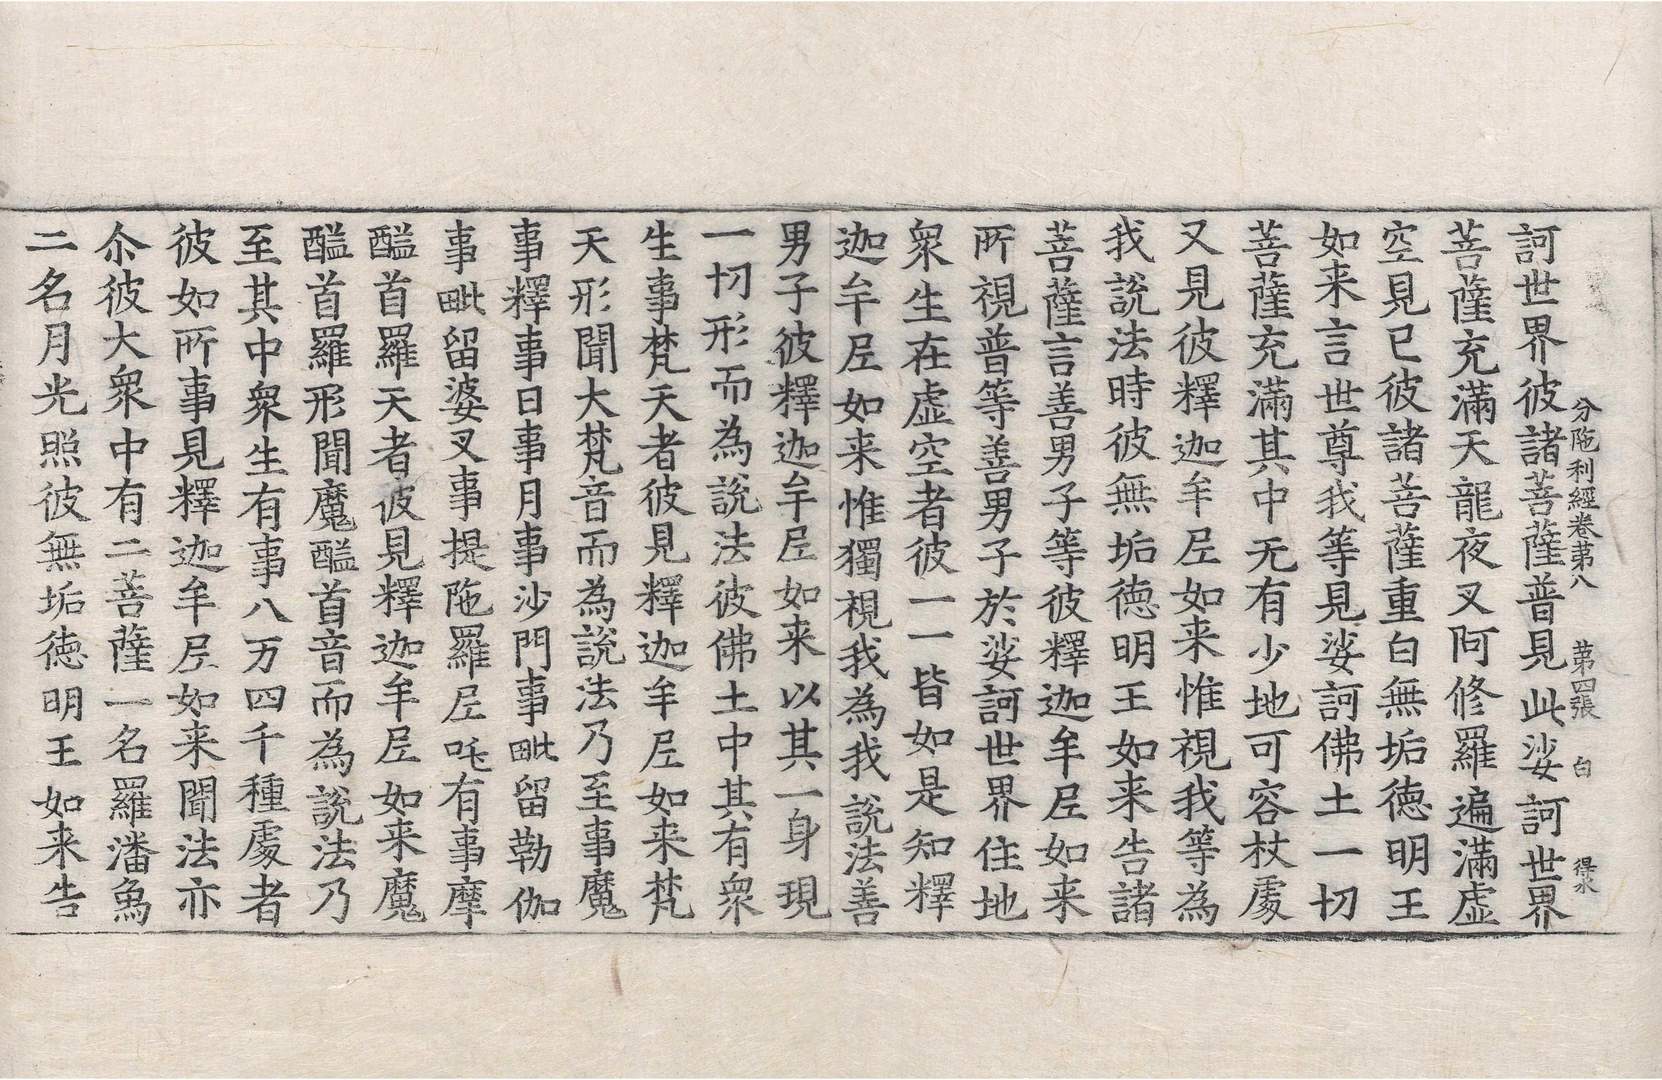 分陁利經卷第八　第四張　白　得水
訶世界彼諸菩薩普見此娑訶世界
菩薩充滿天龍夜叉阿修羅遍滿虛
空見已彼諸菩薩重白無垢徳明王
如来言世尊我等見娑訶佛土一切
菩薩充滿其中无有少地可容杖處
又見彼釋迦牟尼如来惟視我等為
我說法時彼無垢徳明王如来告諸
菩薩言善男子等彼釋迦牟尼如来
所視普等善男子於娑訶世界住地
衆生在虛空者彼一一皆如是知釋
迦牟尼如来惟獨視我為我說法善
男子彼釋迦牟尼如来以其一身現
一切形而為說法彼佛土中其有衆
生事梵天者彼見釋迦牟尼如来梵
天形聞大梵音而為說法乃至事魔
事釋事日事月事沙門事毗留勒伽
事毗留婆叉事提陁羅尼吒有事摩
醯首羅天者彼見釋迦牟尼如来魔
醯首羅形聞魔醯首音而為說法乃
至其中衆生有事八万四千種處者
彼如所事見釋迦牟尼如来聞法亦
尒彼大衆中有二菩薩一名羅潘㝹
二名月光照彼無垢徳明王如来告